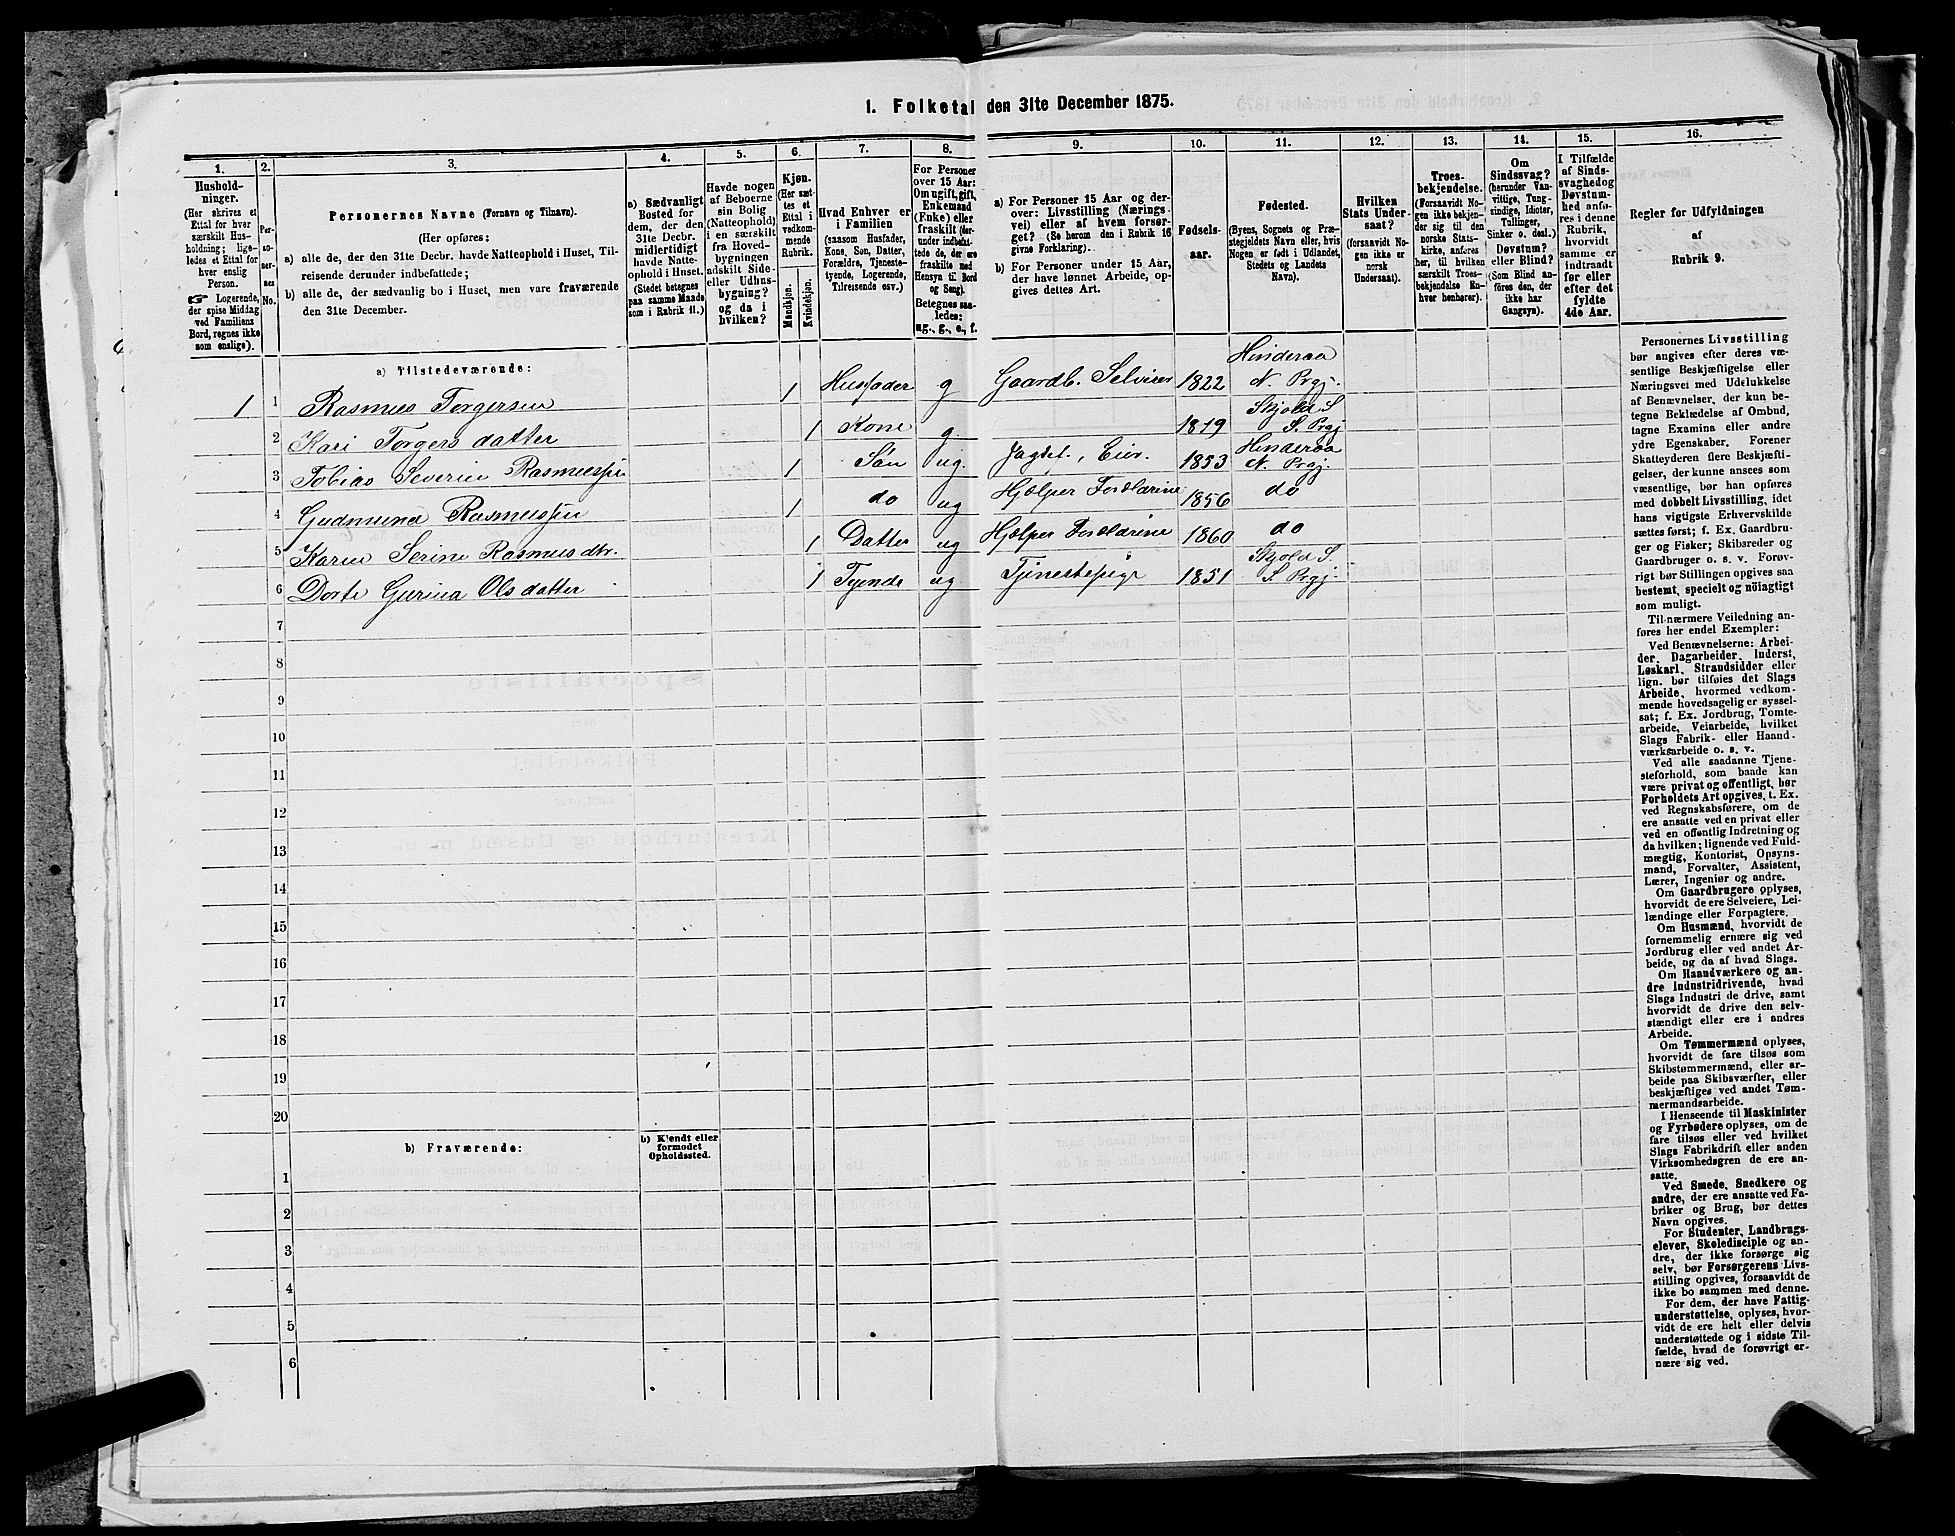 1. Folketal den 31te December 1875.
1.
2.
3.
4.
5.
6.
7.
8.
9.
10.
11.
12.
13.
14.
15.
16.
Hushold-
ninger.
(Her skrives et
Ettal for hver
særskilt Hus-
holdning; lige-
ledes et Ettal for
hver enslig
Person.
☞ Logerende,
der spise Middag
ved Familiens
Bord, regnes ikke
som enslige).
Per-
so-
ner-
nes
No.
Personernes Navne (Fornavn og Tilnavn).
(Her opføres:
a) alle de, der den 31te Decbr. havde Natteophold i Huset, Til-
reisende derunder indbefattede;
b) alle de, der sædvanlig bo i Huset, men vare fraværende
den 31te December.
a) Sædvanligt
Bosted for
dem, der den
31te Decbr.
midlertidigt
havde Natte-
ophold i Huset.
(Stedet betegnes
paa samme Maade
som i Rubrik 11.)
Havde nogen
af Beboerne
sin Bolig
(Natteophold)
i en særskilt
fra Hoved-
bygningen
adskilt Side-
eller Udhus-
bygning?
og da i
hvilken?
Kjøn.
(Her sæt-
tes et
Ettal i
vedkom-
mende
Rubrik.
Mandkjøn.
Kvindekjøn.
Hvad Enhver er
i Familien
(saasom Husfader,
Kone, Søn, Datter,
Forældre, Tjeneste-
tyende, Logerende,
Tilreisende osv.)
For Personer
over 15 Aar:
Om ugift, gift,
Enkemand
(Enke) eller
fraskilt (der-
under indbefat-
tede de, der ere
fraskilte med
Hensyn til Bord
og Seng).
Betegnes saa-
ledes:
ug., g., e., f.
a) For Personer 15 Aar og der-
over: Livsstilling (Nærings-
vei) eller af hvem forsør-
get? (Se herom den i Rubrik 16
givne Forklaring).
b) For Personer under 15 Aar,
der have lønnet Arbeide, op-
gives dettes Art.
Fødsels-
aar.
Fødested.
(Byens, Sognets og Præ-
stegjeldets Navn eller, hvis
Nogen er født i Udlandet,
Stedets og Landets
Navn).
Hvilken
Stats Under-
saat?
(forsaavidt No-
gen ikke er
norsk
Undersaat).
Troes-
bekjendelse.
(Forsaavidt No-
gen ikke bekjen-
der sig til den
norske Stats-
kirke, anføres
her, til hvilken
særskilt Troes-
bekjendelse En-
hver henhører).
Om
Sindssvag?
(herunder Van-
vittige, Tung-
sindige, Idioter,
Tullinger,
Sinker o. desl.)
Døvstum?
eller Blind?
(Som Blind an-
føres den, der
ikke har
Gangsyn).
I Tilfælde
af Sinds-
svaghed og
Døvstum-
hed anfø-
res i denne
Rubrik,
hvorvidt
samme er
indtraadt
før eller
efter det
fyldte
4de Aar.
Regler for Udfyldningen
af
Rubrik 9.
a) Tilstedeværende:
1 1 Rasmus Torgersen 1 Husfader g Gaardb. Selveier 1822 Hinderaa N. Prgj.
2 Kari Torgers datter 1 Kone g. 1819 Skjold S. S. Prgj
3 Tobias Severin Rasmussen 1 Søn ug. Jagtef., Eier. 1853 Hinderaa N. Prgj.
4 Gudmund Rasmussen 1 do ug Hjælper Forældrene 1856 do
5 Karen Serine Rasmusdtr. 1 Datter ug Hjælper Forældrene 1860 do
6 Dorte Gurina Olsdatter 1 Tyende ug Tjenestepige 1851 Skjold S. S. Prgj.
7
8
9
10
11
12
13
14
15
16
17
18
19
20
b) Fraværende:
b) Kjendt eller
formodet
Opholdssted.
1
2
3
4
5
6
Personernes Livsstilling
bør angives efter deres væ-
sentlige Beskjæftigelse eller
Næringsvei med Udelukkelse
af Benævnelser, der kun be-
tegne Beklædelse af Ombud,
tagne Examina eller andre
ydre Egenskaber. Forener
Skatteyderen flere Beskjæfti-
gelser, der kunne ansees som
væsentlige, bør han opføres
med dobbelt Livsstilling, idet
hans vigtigste Erhvervskilde
sættes først; f. Ex. Gaardbru-
ger og Fisker; Skibsreder og
Gaardbruger o. s. v. Forøv-
rigt bør Stillingen opgives saa
bestemt, specielt og nøiagtigt
som muligt.
Til nærmere Veiledning an-
føres her endel Exempler:
Ved Benævnelserne: Arbei-
der, Dagarbeider, Inderst,
Løskarl, Strandsidder eller
lign. bør tilføies det Slags
Arbeide, hvormed vedkom-
mende hovedsagelig er syssel-
sat; f. Ex. Jordbrug, Tomte-
arbeide, Veiarbeide, hvilket
Slags Fabrik- eller Haand-
værksarbeide o. s. v.
Ved alle saadanne Tjene-
steforhold, som baade kan
være privat og offentligt, bør
Forholdets Art opgives, t. Ex.
ved Regnskabsførere, om de
ere ansatte ved en privat eller
ved en offentlig Indretning og
da hvilken; lignende ved Fuld-
mægtig, Kontorist, Opsyns-
mand, Forvalter, Assistent,
Lærer, Ingeniør og andre.
Om Gaardbrugere oplyses,
hvorvidt de ere Selveiere, Lei-
lændinge eller Forpagtere.
Om Husmænd, hvorvidt de
fornemmelig ernære sig ved
Jordbrug eller ved andet Ar-
beide, og da af hvad Slags.
Om Haandværkere og an-
dre Industridrivende, hvad
Slags Industri de drive, samt
hvorvidt de drive den selv-
stændigt eller ere i andres
Arbeide.
Om Tømmermænd oplyses,
hvorvidt de fare tilsøs som
Skibstømmermænd, eller ar-
beide paa Skibsværfter, eller
beskjæftiges ved andet Tøm-
mermandsarbeide.
I Henseende til Maskinister
og Fyrbødere oplyses, om de
fare tilsøs eller ved hvilket
Slags Fabrikdrift eller anden
Virksomhedsgren de ere an-
satte.
Ved Smede, Snedkere og
andre, der ere ansatte ved Fa-
briker og Brug, bør dettes
Navn opgives.
For Studenter, Landbrugs-
elever, Skoledisciple og an-
dre, der ikke forsørge sig
selv, bør Forsørgerens Livs-
stilling opgives, forsaavidt de
ikke bo sammen med denne.
For dem, der have Fattig-
understøttelse, oplyses, hvor-
vidt de ere helt eller delvis
understøttede og i sidste Til-
fælde, hvad de forøvrigt er-
nære sig ved.